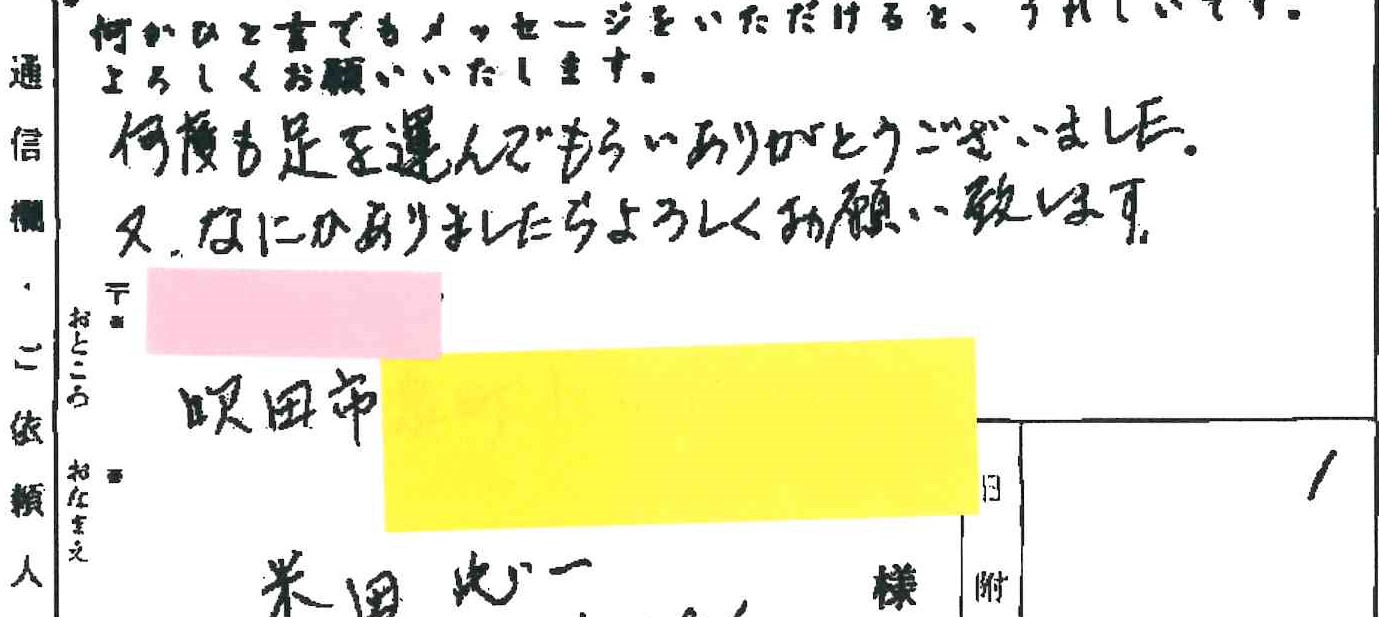 何かひと言でもメッセージをいただけると、うれしいです。
よろしくお願いいたします。
何度も足を運んでもらいありがとうございました。
又、なにかありましたらよろしくお願い致します。
通信欄・ご依頼人
おところ
〒
※
吹田市
おなまえ
※
米田
一
様
日附